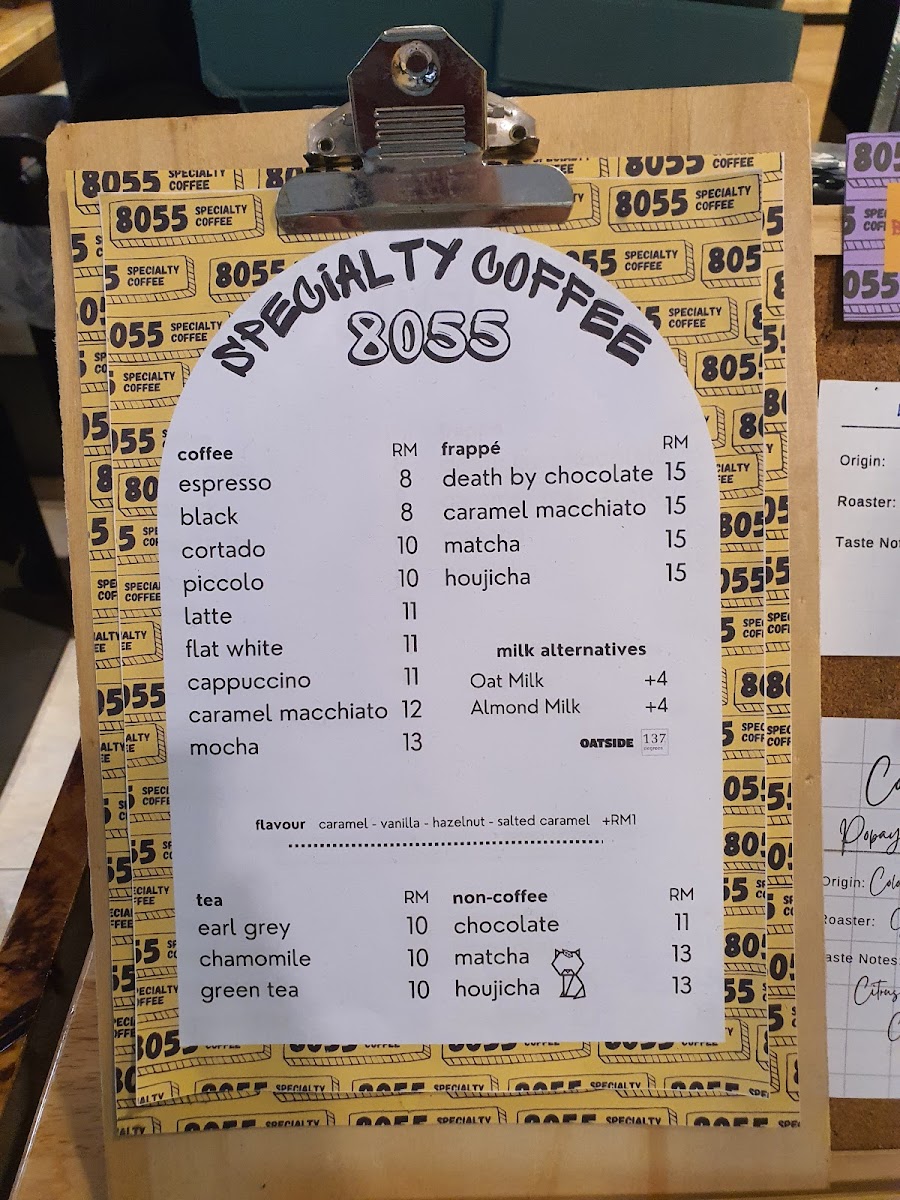 SPECIALTY COFFEE
8055
coffee RM
espresso 8
black 8
cortado 10
piccolo 10
latte 11
flat white 11
cappuccino 11
caramel macchiato 12
mocha 13
frappé RM
death by chocolate 15
caramel macchiato 15
matcha 15
houjicha 15
milk alternatives
Oat Milk +4
Almond Milk +4
OATSIDE 137 degrees
flavour caramel - vanilla - hazelnut - salted caramel +RM1
tea RM
earl grey 10
chamomile 10
green tea 10
non-coffee RM
chocolate 11
matcha 13
houjicha 13
8055 SPECIALTY COFFEE
8055 SPECIALTY COFFEE
Origin:
Roaster:
Origin:
Roaster:
Taste Notes